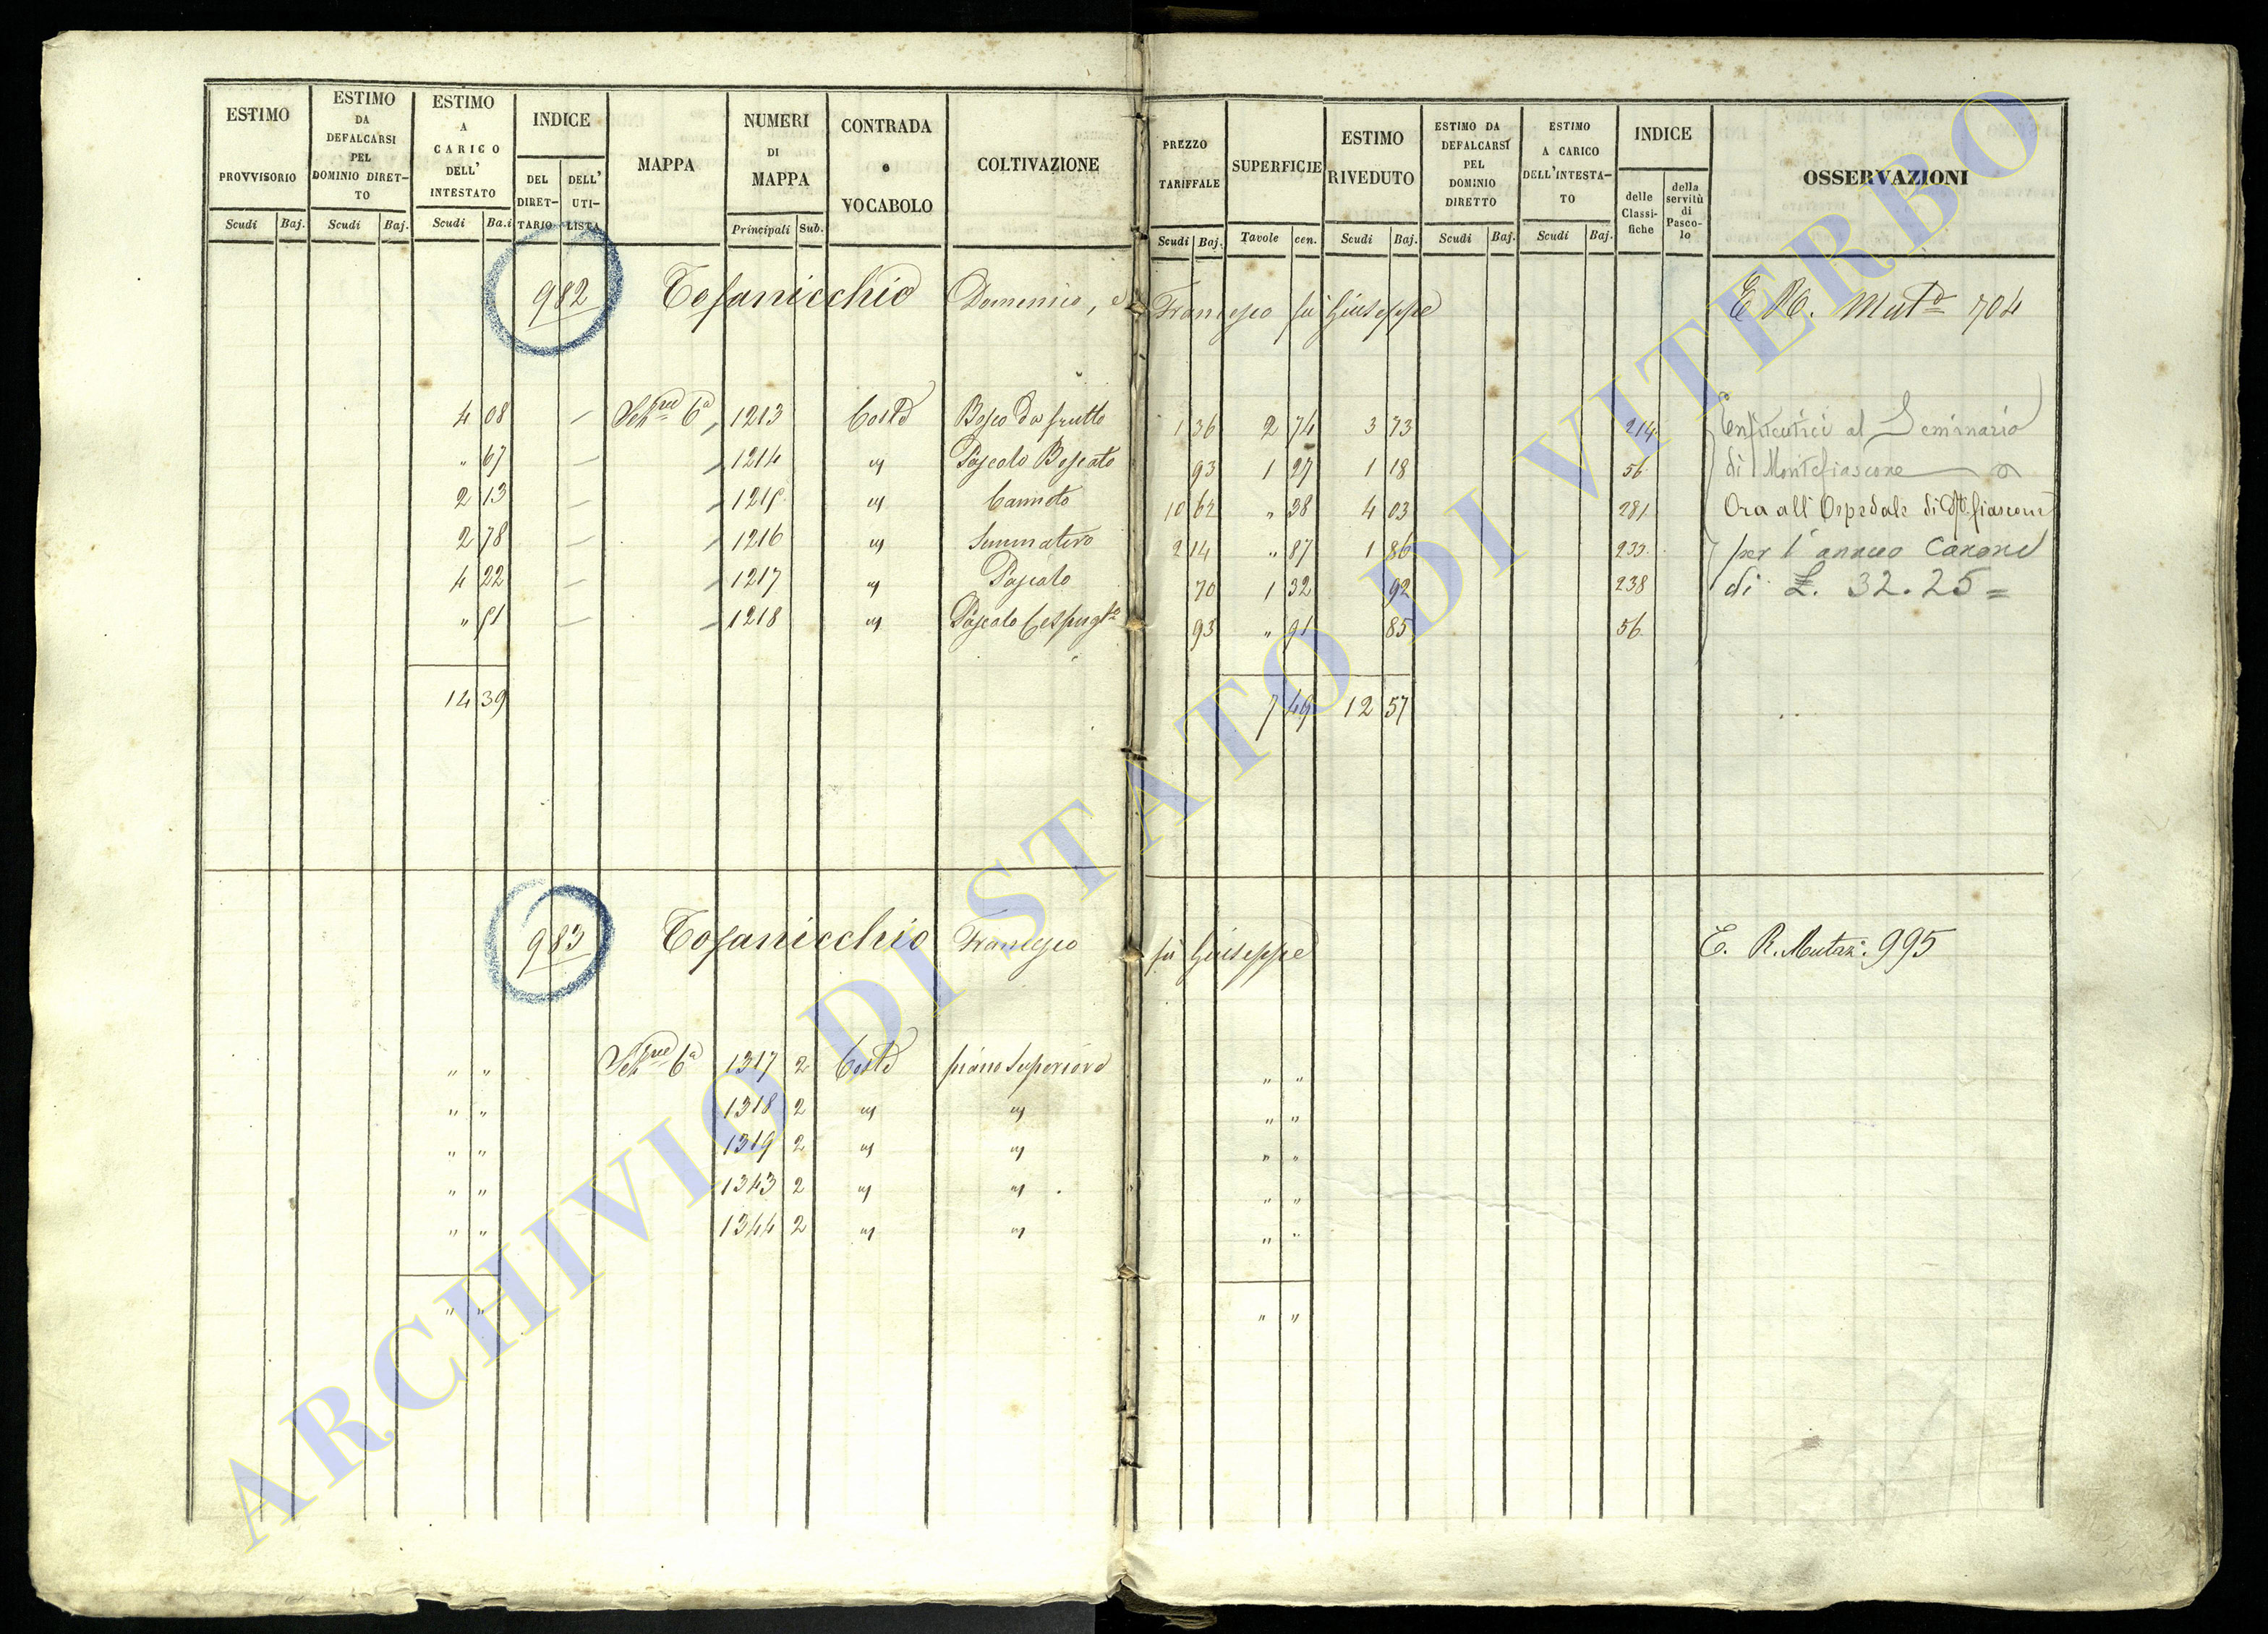 ESTIMO PROVVISORIO Scudi Baj.
ESTIMO DA DEFALCARSI PEL DOMINIO DIRETTO Scudi Baj.
ESTIMO A CARICO DELL' INTESTATO Scudi Ba.i
INDICE DEL DIRETTARIO DELL' UTILISTA
MAPPA
NUMERI DI MAPPA Principali Sub.
CONTRADA o VOCABOLO
COLTIVAZIONE
PREZZO TARIFFALE Scudi Baj.
SUPERFICIE Tavole cen.
ESTIMO RIVEDUTO Scudi Baj.
ESTIMO DA DEFALCARSI PEL DOMINIO DIRETTO Scudi Baj.
ESTIMO A CARICO DELL'INTESTATO Scudi Baj.
INDICE delle Classifiche della servitù di Pascolo
OSSERVAZIONI
982 Tofanicchio Domenico, e Francesco fù Giuseppe E R. Mut. 704
4 08 Sez 6a 1213 Costa Bosco da frutto 1 36 2 74 3 73 214 Enfiteutici al Seminario
" 67 1214 " Pascolo Boscato 93 1 27 1 18 56 di Montefiascone
2 13 1215 " Canneto 10 62 " 38 4 03 281 Ora all' Ospedale di Mte.fiascone
2 78 1216 " Seminativo 2 14 " 87 1 86 per l'annuo Canone
4 22 1217 " Pascolo 70 1 32 92 238 di £. 32.25 =
" 51 1218 " Pascolo Cespugto 93 " 91 85 56
14 39 7 49 12 57
983 Tofanicchio Francesco fù Giuseppe E. R. Mutaz: 995
" " Sez 6a 1317 2 Costa piano Superiore " "
" " 1318 2 " " " "
" " 1319 2 " " " "
" " 1343 2 " " " "
" " 1344 2 " " " "
" " " "
ARCHIVIO DI STATO DI VITERBO